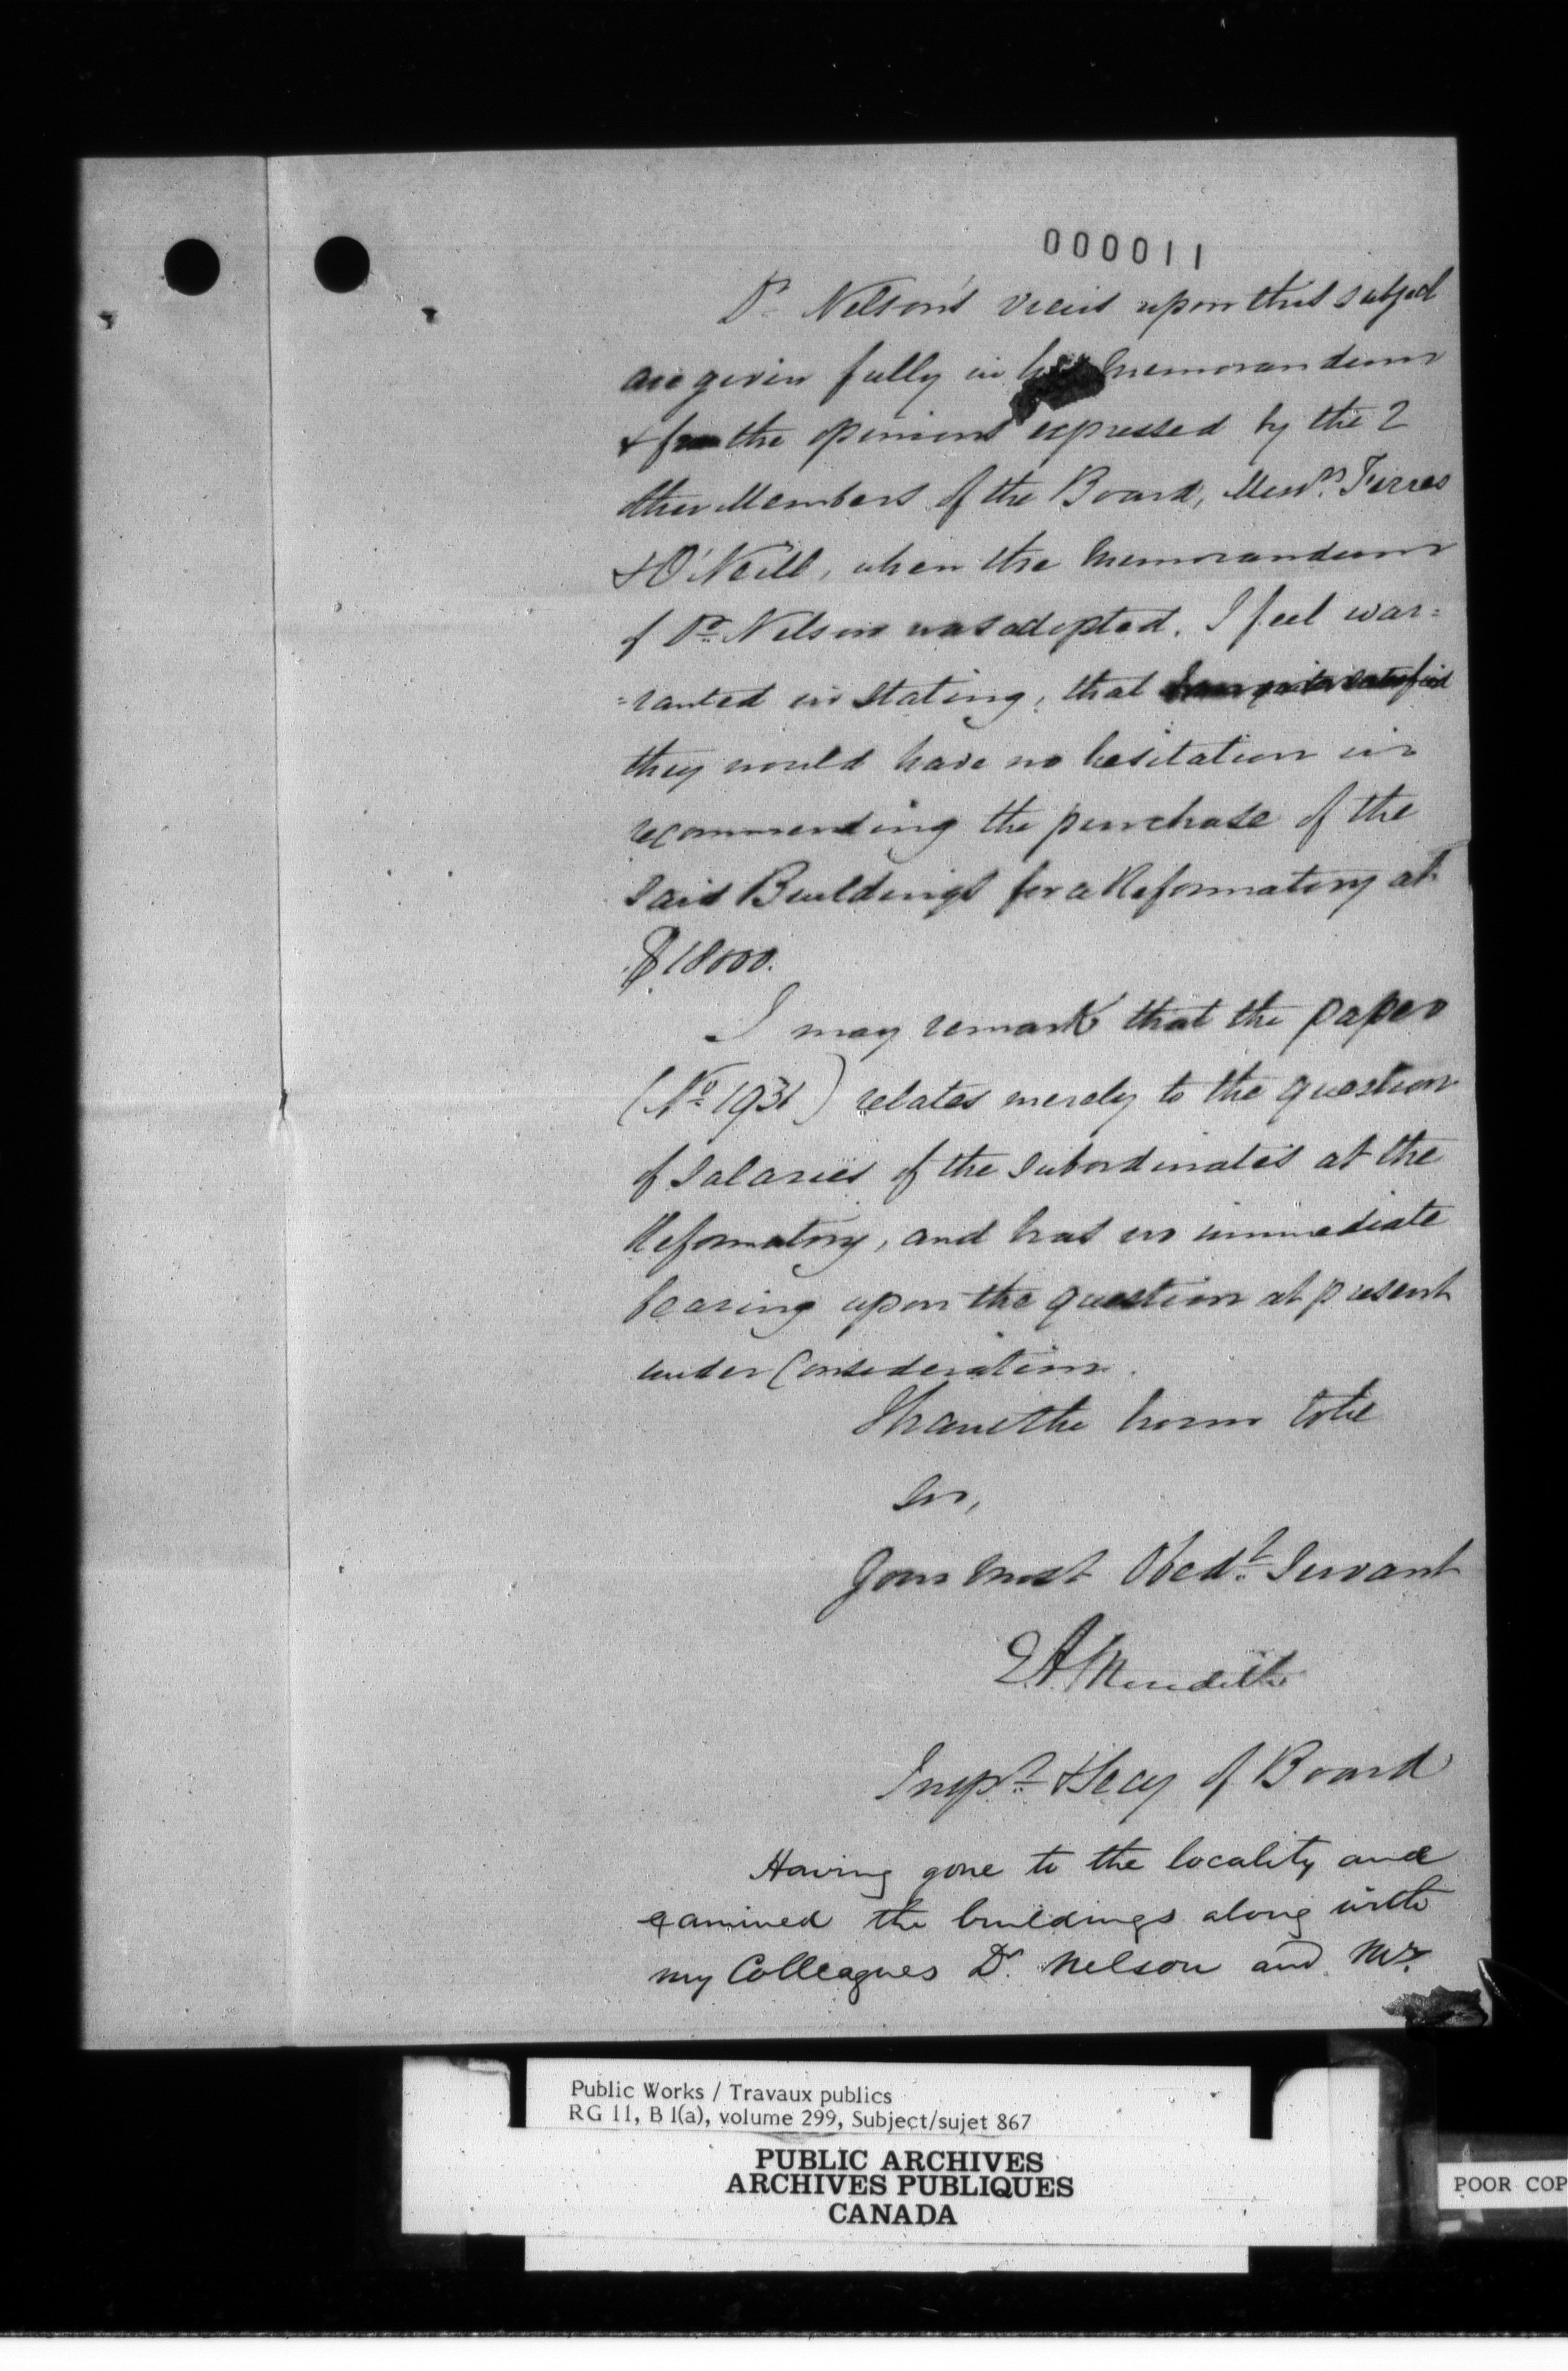 000011
Dr Nelson's views upon this subject
are given fully in his memorandum
& from the opinions expressed by the 2
other Members of the Board, Messrs. Ferres
& O'Neill, when the memorandum
of Dr. Nelson was adopted. I feel war=
=ranted in stating, that
they would have no hesitation in
recommending the purchase of the
said Buildings for a Reformatory at
$18000.
I may remark that the paper
(No 1931) relates merely to the question
of salaries of the subordinates at the
Reformatory, and has no immediate
bearing upon the question at present
under Consideration.
I have the honor to be
Sir,
Your most Obedt. Servant
E A Meredith
Inspr & Secy of Board
Having gone to the locality and
examined the buildings along with
my Colleagues Dr. Nelson and Mr.
Public Works / Travaux publics
RG 11, B 1(a), volume 299, Subject/sujet 867
PUBLIC ARCHIVES
ARCHIVES PUBLIQUES
CANADA
POOR COP